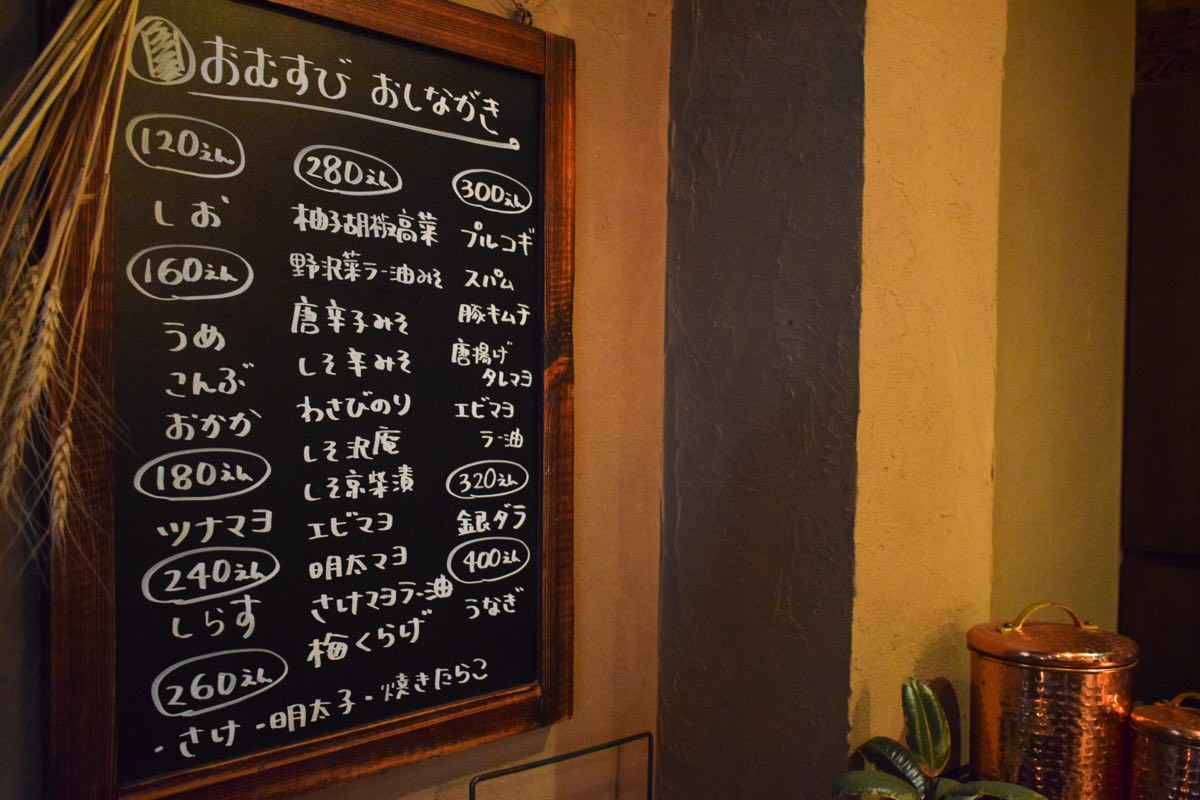 おむすび おしながき
120えん
しお
160えん
うめ
こんぶ
おかか
180えん
ツナマヨ
240えん
しらす
260えん
・さけ・明太子・焼きたらこ
280えん
柚子胡椒高菜
野沢菜ラー油みそ
唐辛子みそ
しそ辛みそ
わさびのり
しそ沢庵
しそ京柴漬
エビマヨ
明太マヨ
さけマヨラー油
梅くらげ
300えん
プルコギ
スパム
豚キムチ
唐揚げ
タレマヨ
エビマヨ
ラー油
320えん
銀ダラ
400えん
うなぎ